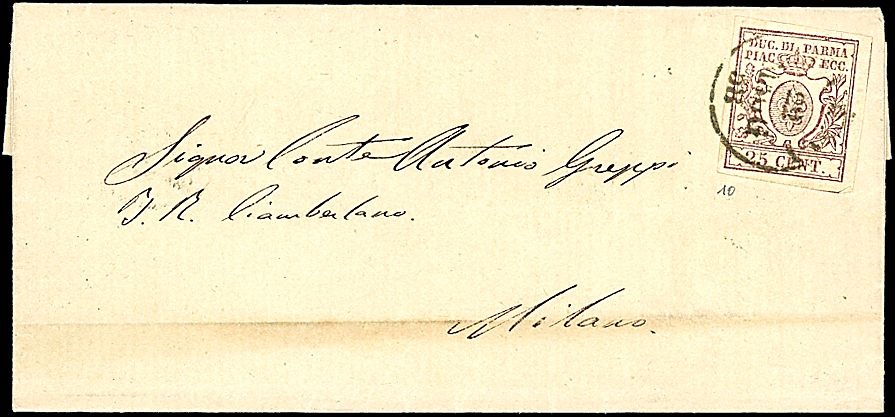 DUC. DI PARMA
PIAC ECC.
25 CENT.
Signor Conte Antonio Greppi
I. R. Ciamberlano.
Milano.
10